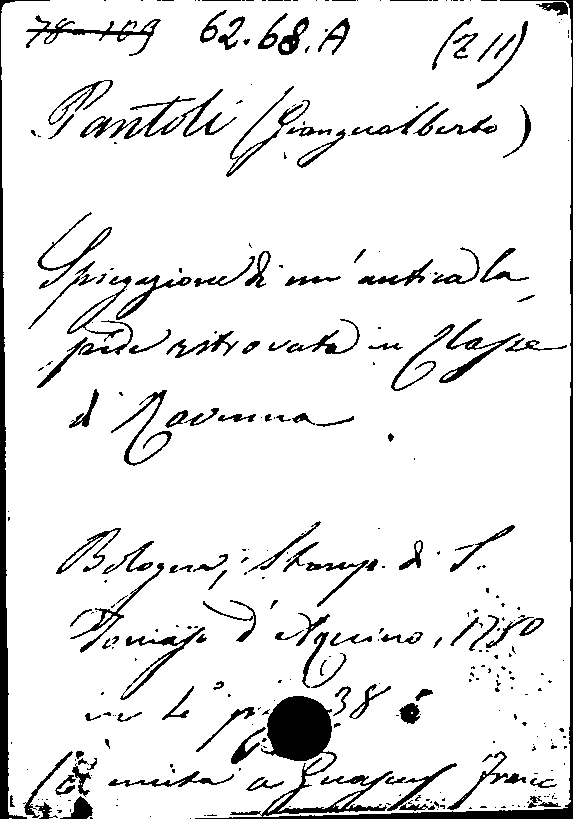 78-109 62.68.A (Z 11)
Pantoli (Giangualberto)
Spiegazione di un'antica la
pide ritrovata in Classe
di Ravenna.
Bologna, Stamp. di S.
Tomaso d'Aquino, 1780
in 4° pag 38
(È unita a Guasco Franc